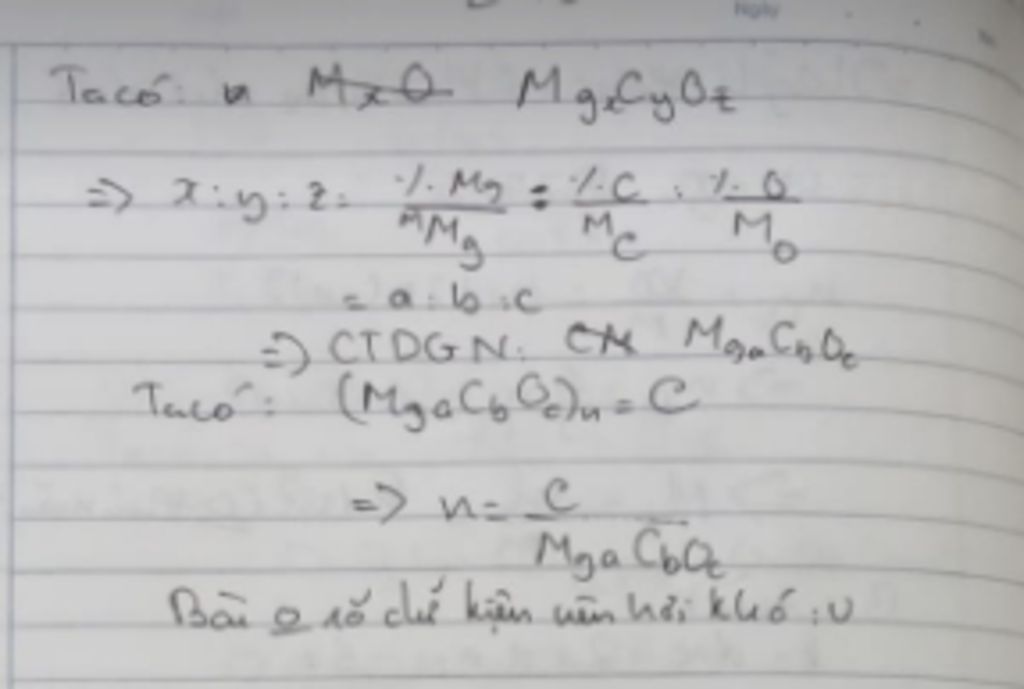 Ngày
Ta có: MxO MgxCyOz
=> x : y : z = %.Mg/MMg : %.C/MC : %.O/MO
= a : b : c
=> CTDGN: MgaCbOc
Ta có: (MgaCbOc)n = C
=> n = C/MgaCbOc
Bài o rõ dữ kiện nên hơi khó :v